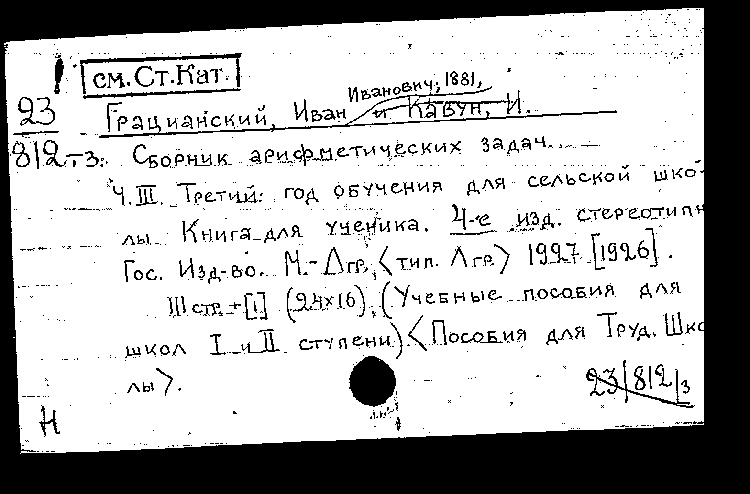 ! см. Ст. Кат.
Иванович, 1881,
23 Грацианский, Иван и Кавун, И.
812-3. Сборник арифметических задач.
Ч. III. Третий год обучения для сельской шко-
лы. Книга для ученика. 4-е изд. стереотипн
Гос. Изд-во. М.-Лгр, <тип. Лгр> 1927 [1926].
111 стр. + [1] (24×16), (Учебные пособия для
школ I и II ступени) <Пособия для Труд. Шко
лы>.
23/812/3
Н